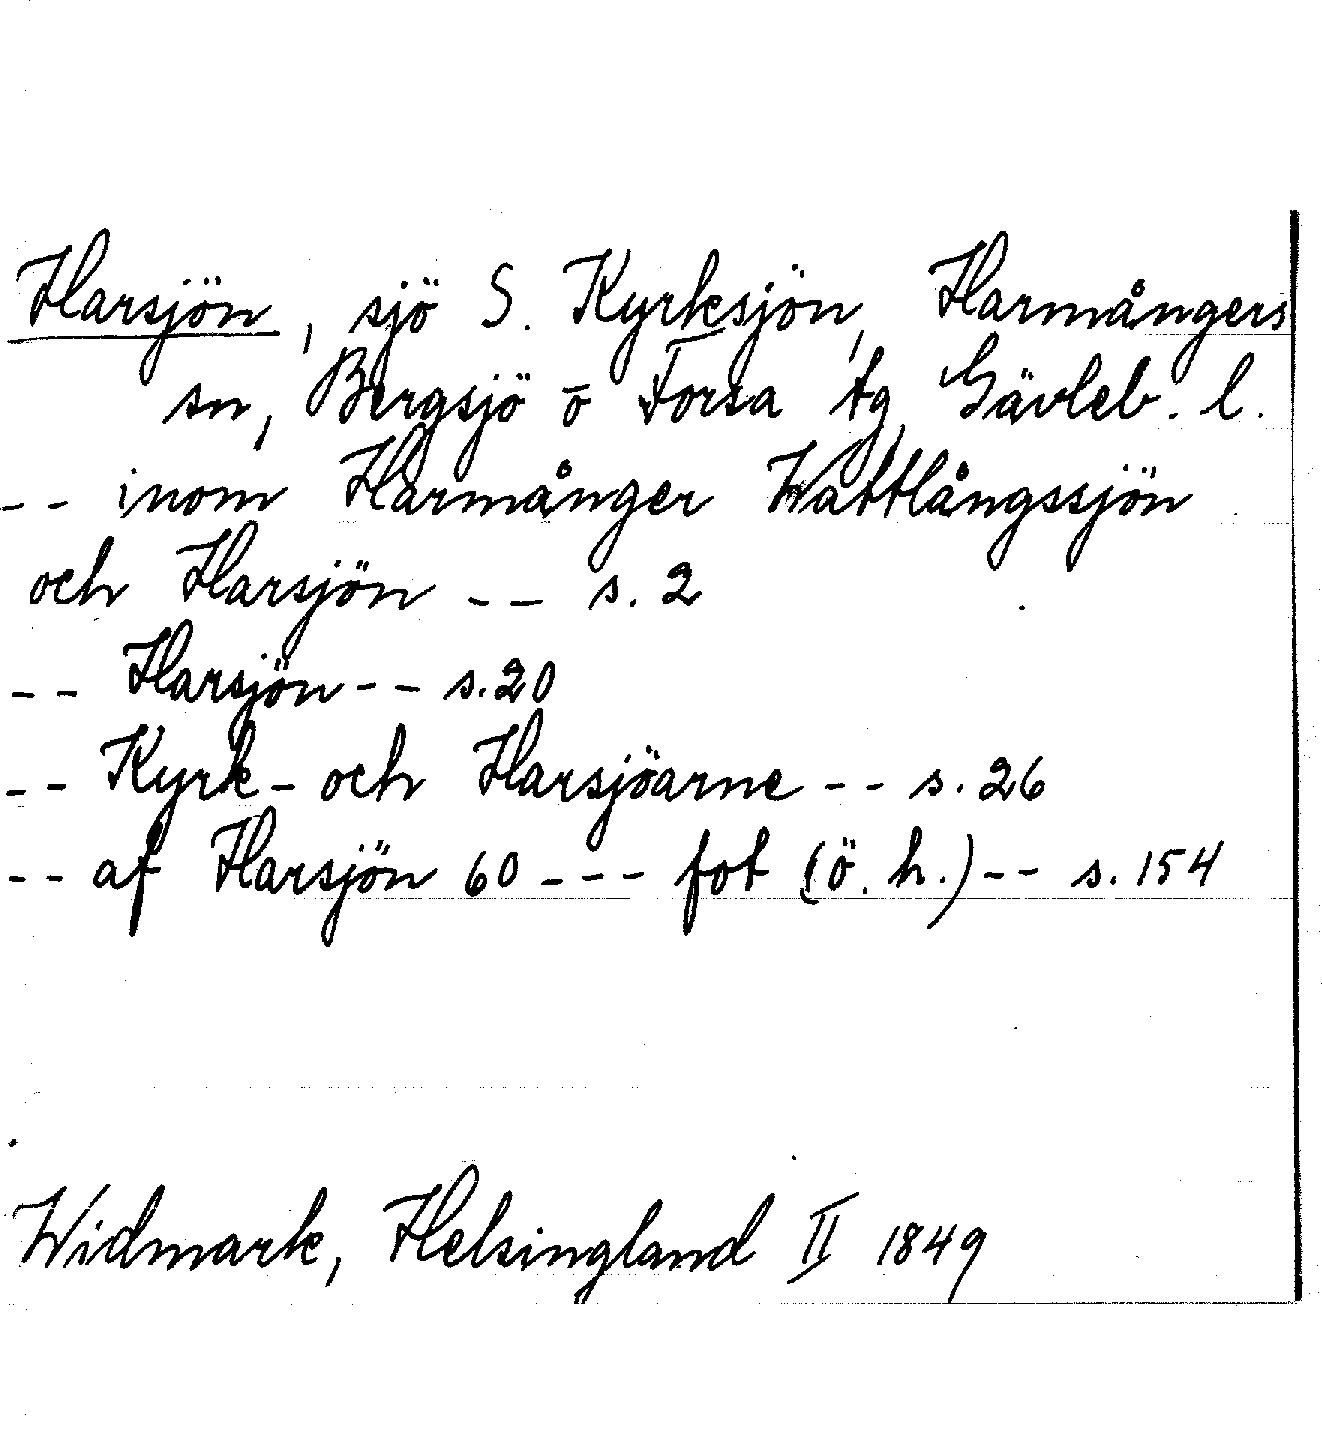 Harsjön, sjö S. Kyrksjön, Harmångers
sn, Bergsjö o Forsa tg, Gävleb. l.
-- inom Harmånger Wattlångssjön
och Harsjön -- s. 2
-- Harsjön -- s. 20
-- Kyrk- och Harsjöarne -- s. 26
-- af Harsjön 60 --- fot (ö. h.) -- s. 154
Widmark, Helsingland II 1849